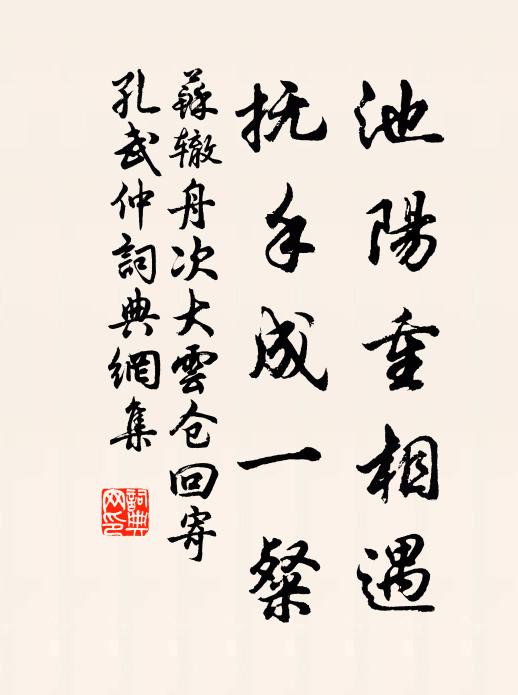 池陽重相遇
抚手成一粲
蘇辙舟次大雲仓回寄
孔武仲詞典網集
詞典网印